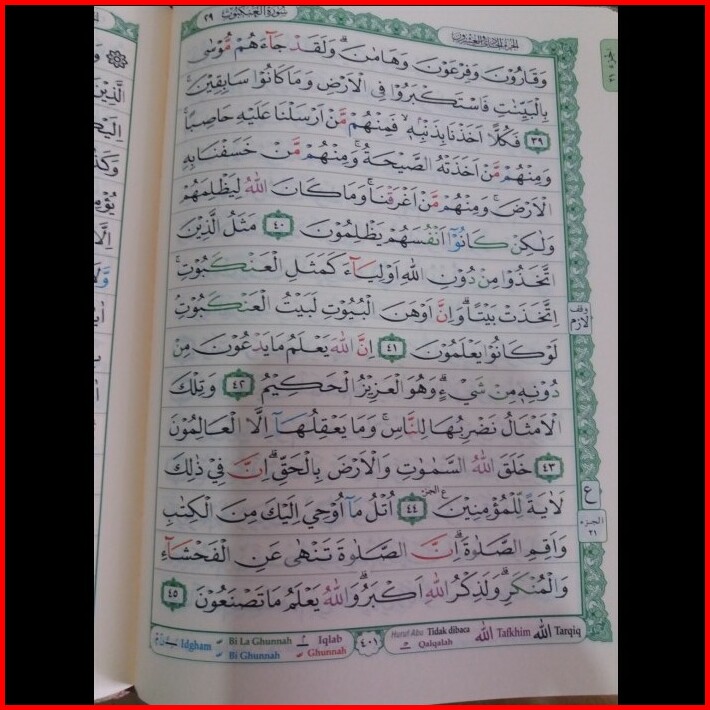 سُوْرَةُ الْعَنْكَبُوْتِ ٢٩
الجزء العشرون
وَقَارُوْنَ وَفِرْعَوْنَ وَهَامٰنَۗ وَلَقَدْ جَاۤءَهُمْ مُّوْسٰى
بِالْبَيِّنٰتِ فَاسْتَكْبَرُوْا فِى الْاَرْضِ وَمَا كَانُوْا سَابِقِيْنَۚ
٣٩ فَكُلًّا اَخَذْنَا بِذَنْۢبِهٖۙ فَمِنْهُمْ مَّنْ اَرْسَلْنَا عَلَيْهِ حَاصِبًاۚ
وَمِنْهُمْ مَّنْ اَخَذَتْهُ الصَّيْحَةُۚ وَمِنْهُمْ مَّنْ خَسَفْنَا بِهِ
الْاَرْضَۚ وَمِنْهُمْ مَّنْ اَغْرَقْنَاۚ وَمَا كَانَ اللّٰهُ لِيَظْلِمَهُمْ
وَلٰكِنْ كَانُوْٓا اَنْفُسَهُمْ يَظْلِمُوْنَ ٤٠ مَثَلُ الَّذِيْنَ
اتَّخَذُوْا مِنْ دُوْنِ اللّٰهِ اَوْلِيَاۤءَ كَمَثَلِ الْعَنْكَبُوْتِۚ
اِتَّخَذَتْ بَيْتًاۗ وَاِنَّ اَوْهَنَ الْبُيُوْتِ لَبَيْتُ الْعَنْكَبُوْتِۘ
لَوْ كَانُوْا يَعْلَمُوْنَ ٤١ اِنَّ اللّٰهَ يَعْلَمُ مَا يَدْعُوْنَ مِنْ
دُوْنِهٖ مِنْ شَيْءٍۗ وَهُوَ الْعَزِيْزُ الْحَكِيْمُ ٤٢ وَتِلْكَ
الْاَمْثَالُ نَضْرِبُهَا لِلنَّاسِۚ وَمَا يَعْقِلُهَآ اِلَّا الْعَالِمُوْنَ
٤٣ خَلَقَ اللّٰهُ السَّمٰوٰتِ وَالْاَرْضَ بِالْحَقِّۗ اِنَّ فِيْ ذٰلِكَ
لَاٰيَةً لِّلْمُؤْمِنِيْنَ ٤٤ اُتْلُ مَآ اُوْحِيَ اِلَيْكَ مِنَ الْكِتٰبِ
وَاَقِمِ الصَّلٰوةَۗ اِنَّ الصَّلٰوةَ تَنْهٰى عَنِ الْفَحْشَاۤءِ
وَالْمُنْكَرِۗ وَلَذِكْرُ اللّٰهِ اَكْبَرُۗ وَاللّٰهُ يَعْلَمُ مَا تَصْنَعُوْنَ ٤٥
وقف لازم
ع
الجزء
٢١
Idgham Bi La Ghunnah Iqlab
Bi Ghunnah Ghunnah
٤٠١
Huruf Abu Tidak dibaca
Qalqalah
الله Tafkhim الله Tarqiq